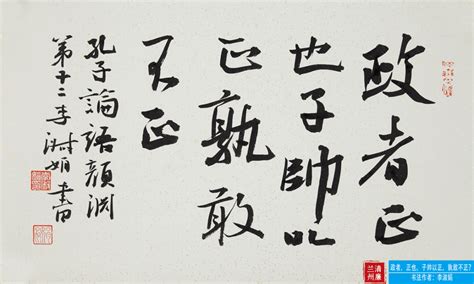 政者正
也子帥以
正孰敢
不正
孔子論語顏淵
第十二李淑娟書
清廉
兰州
政者，正也，子帅以正，孰敢不正？
书法作者：李淑娟